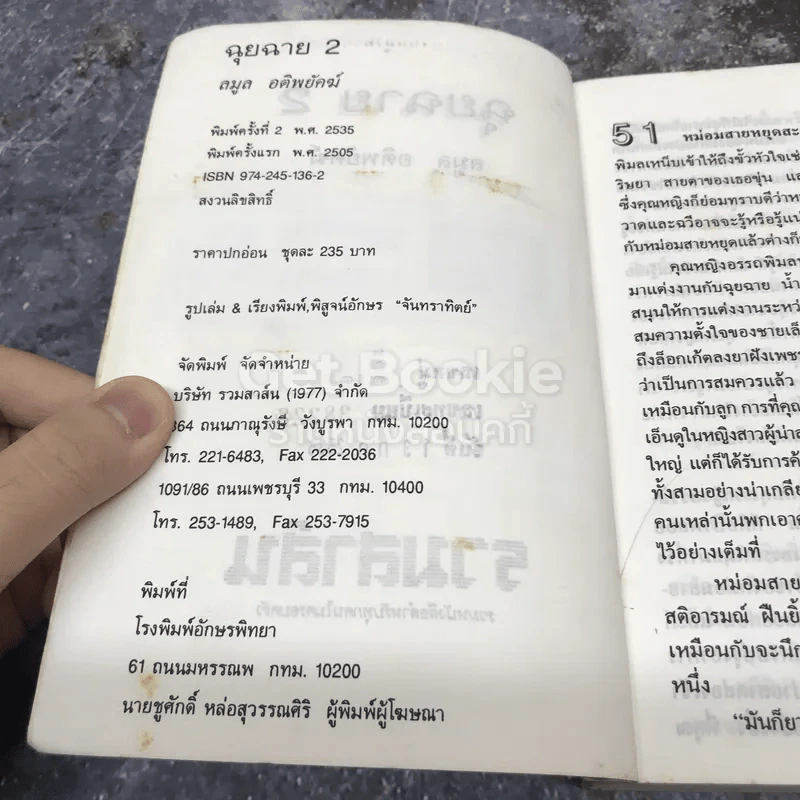 ฉุยฉาย 2
ลมูล อติพยัคฆ์
พิมพ์ครั้งที่ 2 พ.ศ. 2535
พิมพ์ครั้งแรก พ.ศ. 2505
ISBN 974-245-136-2
สงวนลิขสิทธิ์
ราคาปกอ่อน ชุดละ 235 บาท
รูปเล่ม & เรียงพิมพ์,พิสูจน์อักษร "จันทราทิตย์"
จัดพิมพ์ จัดจำหน่าย
บริษัท รวมสาส์น (1977) จำกัด
864 ถนนภาณุรังษี วังบูรพา กทม. 10200
โทร. 221-6483, Fax 222-2036
1091/86 ถนนเพชรบุรี 33 กทม. 10400
โทร. 253-1489, Fax 253-7915
พิมพ์ที่
โรงพิมพ์อักษรพิทยา
61 ถนนมหรรณพ กทม. 10200
นายชูศักดิ์ หล่อสุวรรณศิริ ผู้พิมพ์ผู้โฆษณา
Get Bookie
51 หม่อมสายหยุดสะ
พิมลเหน็บเข้าให้ถึงขั้วหัวใจเช่
ริษยา สายตาของเธอขุ่น แล
ซึ่งคุณหญิงก็ย่อมทราบดีว่าห
วาดและฉวีอาจจะรู้หรือรู้แน
กับหม่อมสายหยุดแล้วต่างก็
คุณหญิงอรรถพิมล
มาแต่งงานกับฉุยฉาย น้ำ
สนุนให้การแต่งงานระหว่
สมความตั้งใจของชายเล็
ถึงล็อกเก้ตลงยาฝังเพชร
ว่าเป็นการสมควรแล้ว
เหมือนกับลูก การที่คุณ
เอ็นดูในหญิงสาวผู้น่าส
ใหญ่ แต่ก็ได้รับการค้
ทั้งสามอย่างน่าเกลีย
คนเหล่านั้นพกเอาค
ไว้อย่างเต็มที่
หม่อมสาย
สติอารมณ์ ฝืนยิ้
เหมือนกับจะนึก
หนึ่ง
"มันก็ยา